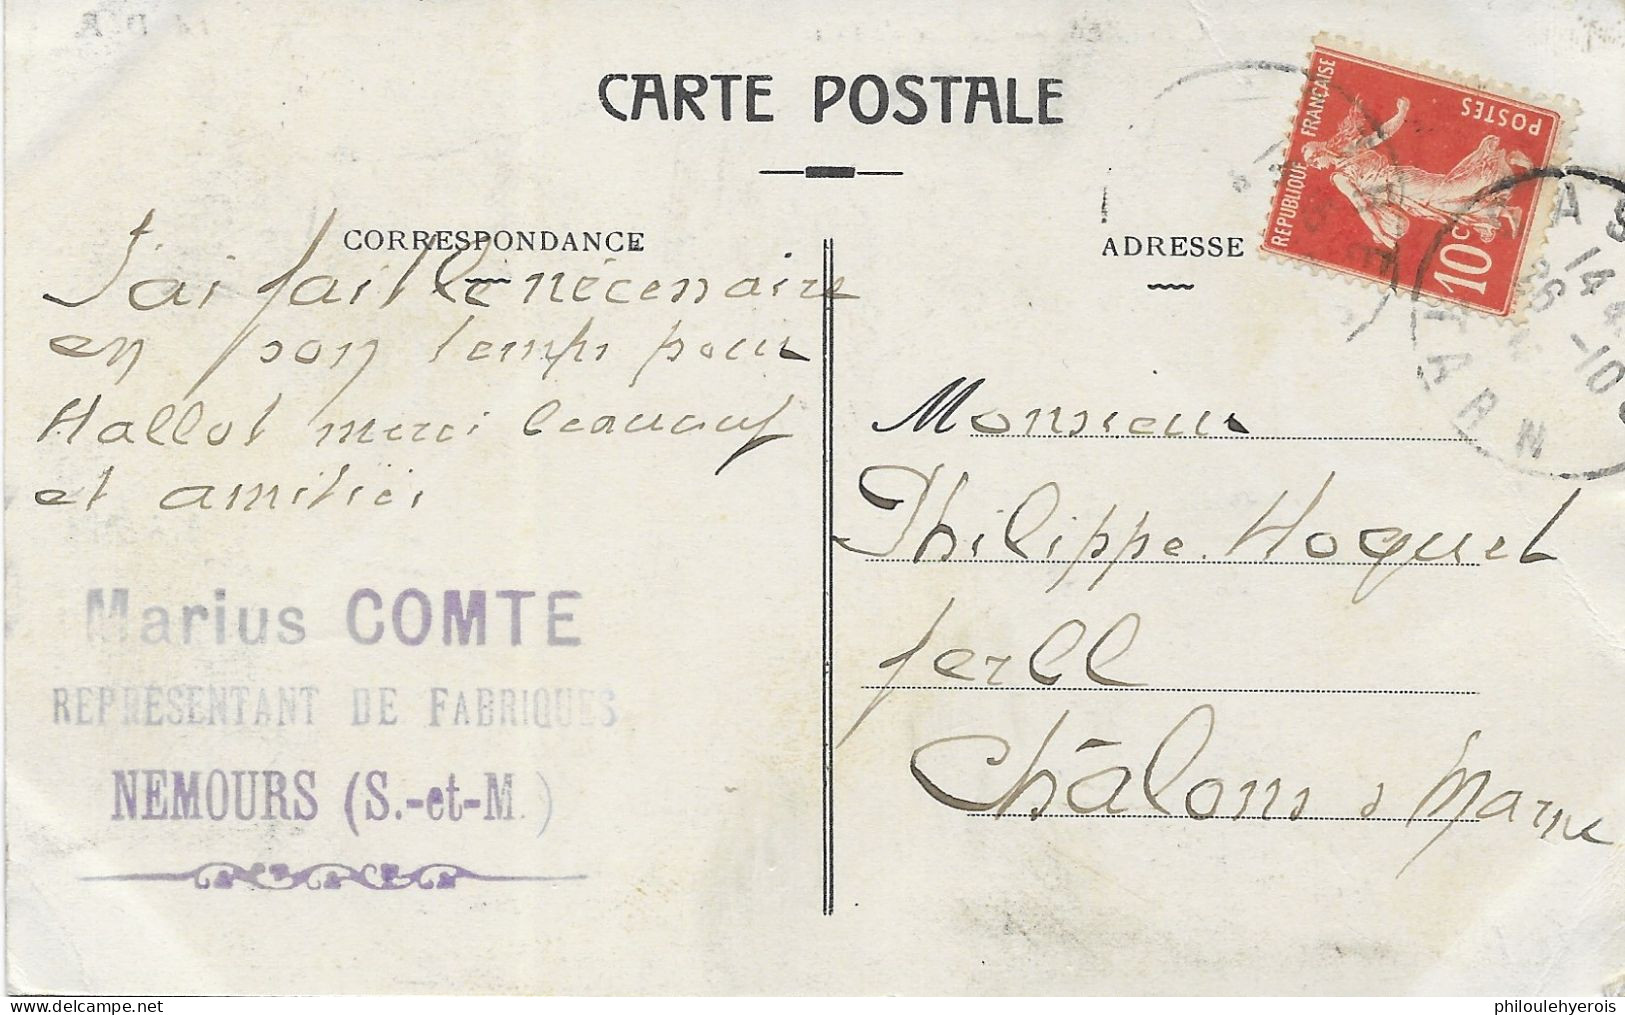 CARTE POSTALE
CORRESPONDANCE
J'ai fait le nécessaire
en son temps pour
Hallot merci beaucoup
et amitiés
Marius COMTE
REPRÉSENTANT DE FABRIQUES
NEMOURS (S.-et-M.)
ADRESSE
Monsieur
Philippe Hoquet
Châlons s Marne
REPUBLIQUE FRANÇAISE
POSTES
10c
TARN
14
26 -10
philoulehyerois